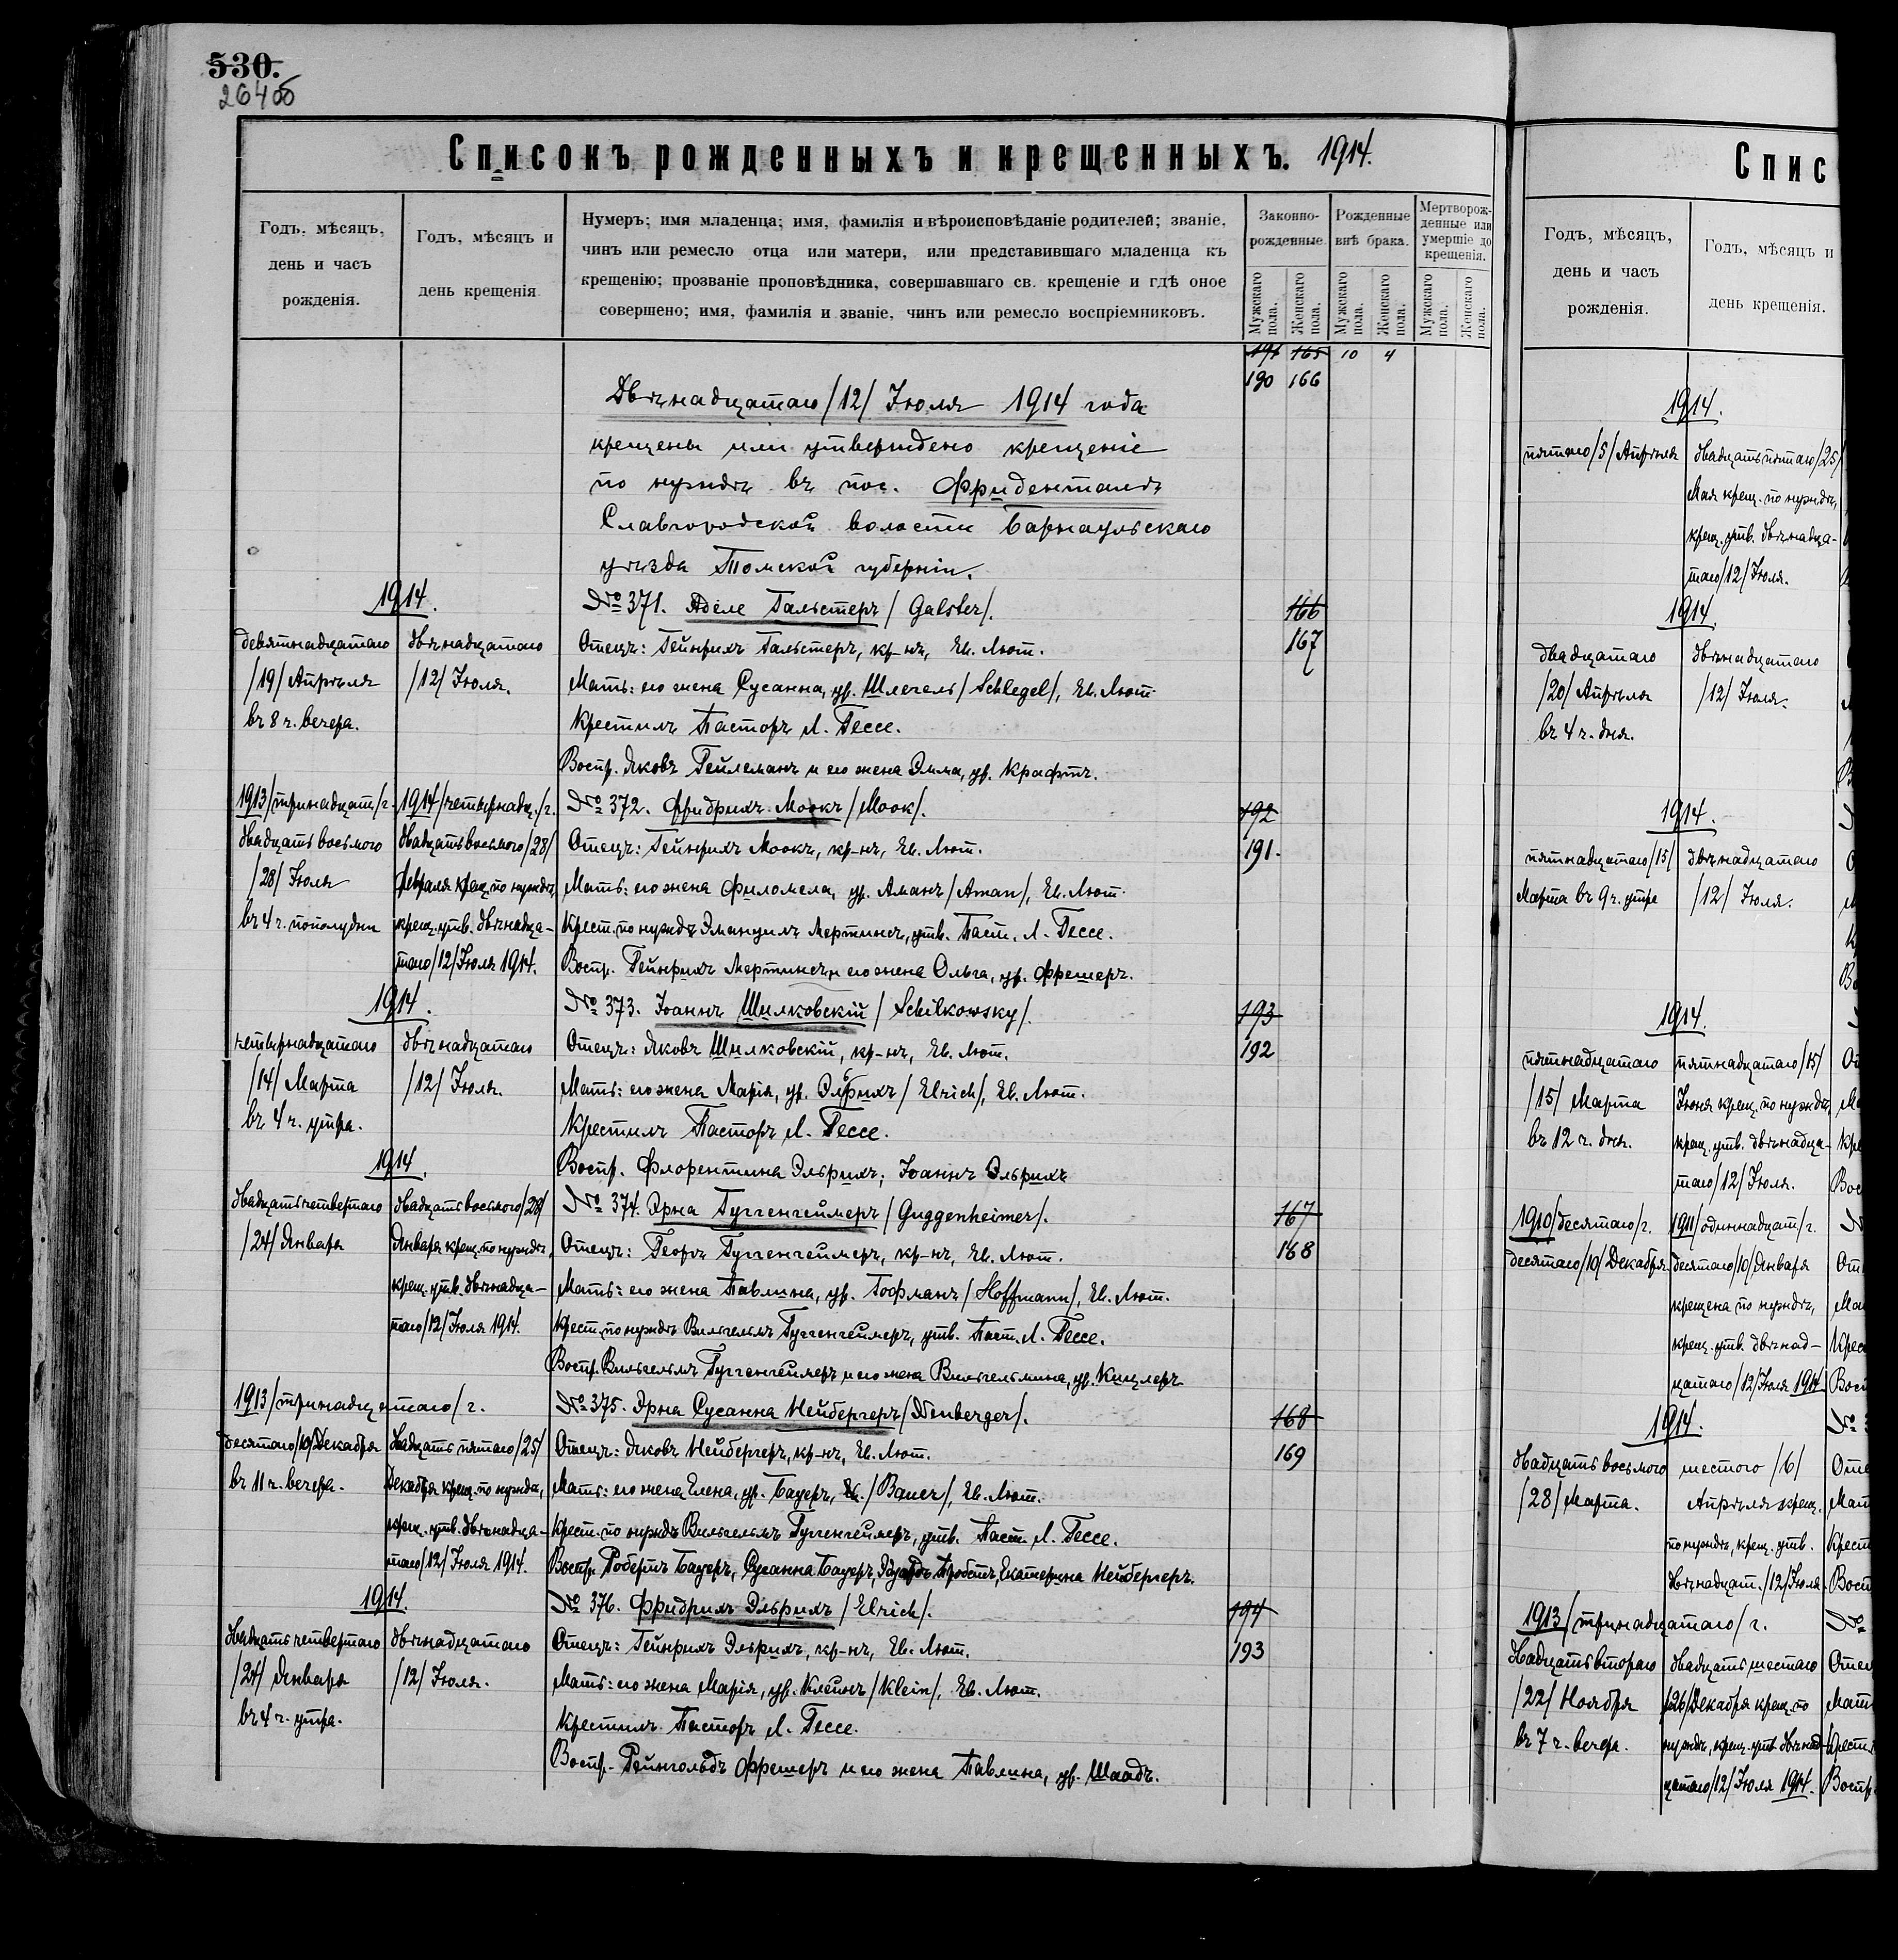 530.
26400
Списокъ рожденныхъ и крещенныхъ. 1914.
Годъ, мѣсяцъ, день и часъ рожденія.
Годъ, мѣсяцъ и день крещенія
Нумеръ; имя младенца; имя, фамилія и вѣроисповѣданіе родителей; званіе,
чинъ или ремесло отца или матери, или представившаго младенца къ
крещенію; прозваніе проповѣдника, совершавшаго св. крещеніе и гдѣ оное
совершено; имя, фамилія и званіе, чинъ или ремесло воспріемниковъ.
Законно-рожденные.
Рожденные внѣ брака.
Мертворож-денные или умершіе до крещенія.
Мужскаго пола.
Женскаго пола.
Мужскаго пола.
Женскаго пола.
Мужскаго пола.
Женскаго пола.
191 165 10 4
190 166
Двѣнадцатаго /12/ Іюля 1914 года
крещены или утверждено крещеніе
по нуждѣ въ пос. Фриденталь
Славгородской волости Барнаульскаго
уѣзда Томской губерніи.
1914.
девятнадцатаго
/19/ Апрѣля
въ 8 ч. вечера.
двѣнадцатаго
/12/ Іюля.
№ 371. Аделе Гальстеръ /Galster/.
Отецъ: Гейнрихъ Гальстеръ, кр-нъ, Ев. Лют.
Мать: его жена Сусанна, ур. Шлегель /Schlegel/, Ев. Лют.
Крестилъ Пасторъ Л. Гессе.
Воспр. Яковъ Гейлеманъ и его жена Эмма, ур. Крафтъ.
166
167
1913 /тринадцат/ г.
двадцать восьмого
/28/ Іюля
въ 4 ч. пополудни
1914 /четырнадц./ г.
двадцать восьмого /28/
Февраля крещ. по нуждѣ,
крещ. утв. двѣнадца-
таго /12/ Іюля 1914.
№ 372. Фридрихъ Моокъ /Mook/.
Отецъ: Гейнрихъ Моокъ, кр-нъ, Ев. Лют.
Мать: его жена Филомела, ур. Аманъ /Aman/, Ев. Лют.
Крест. по нуждѣ Эмануилъ Мертинсъ, утв. Паст. Л. Гессе.
Воспр. Гейнрихъ Мертинсъ и его жена Ольга, ур. Фрешеръ.
192
191.
1914.
четырнадцатаго
/14/ Марта
въ 4 ч. утра.
двѣнадцатаго
/12/ Іюля.
№ 373. Іоаннъ Шилковскій /Schilkowsky/.
Отецъ: Яковъ Шилковскій, кр-нъ, Ев. Лют.
Мать: его жена Марія, ур. Эльрихъ /Elrich/, Ев. Лют.
Крестилъ Пасторъ Л. Гессе.
Воспр. Флорентина Эльрихъ; Іоаннъ Эльрихъ
193
192
1914.
двадцать четвертаго
/24/ Января
двадцать восьмого /28/
Января крещ. по нуждѣ,
крещ. утв. двѣнадца-
таго /12/ Іюля 1914.
№ 374. Эрна Гуггенгеймеръ /Guggenheimer/.
Отецъ: Георгъ Гуггенгеймеръ, кр-нъ, Ев. Лют.
Мать: его жена Павлина, ур. Гофманъ /Hoffmann/, Ев. Лют.
Крест. по нуждѣ Вильгельмъ Гуггенгеймеръ, утв. Паст. Л. Гессе.
Воспр. Вильгельмъ Гуггенгеймеръ и его жена Вильгельмина, ур. Кицлеръ
167
168
1913 /тринадцатаго/ г.
десятаго /10/ Декабря
въ 11 ч. вечера.
двадцать пятаго /25/
Декабря крещ. по нуждѣ,
крещ. утв. двѣнадца-
таго /12/ Іюля 1914.
№ 375. Эрна Сусанна Нейбергеръ /Neuberger/.
Отецъ: Яковъ Нейбергеръ, кр-нъ, Ев. Лют.
Мать: его жена Елена, ур. Бауеръ, /Bauer/, Ев. Лют.
Крест. по нуждѣ Вильгельмъ Гуггенгеймеръ, утв. Паст. Л. Гессе.
Воспр. Робертъ Бауеръ, Сусанна Бауеръ, Эдуардъ Пробстъ, Екатерина Нейбергеръ.
168
169
1914.
двадцать четвертаго
/24/ Января
въ 4 ч. утра.
двѣнадцатаго
/12/ Іюля.
№ 376. Фридрихъ Эльрихъ /Elrich/.
Отецъ: Гейнрихъ Эльрихъ, кр-нъ, Ев. Лют.
Мать: его жена Марія, ур. Клейнъ /Klein/, Ев. Лют.
Крестилъ Пасторъ Л. Гессе.
Воспр. Рейнгольдъ Фрешеръ и его жена Павлина, ур. Шаадъ.
194
193
Спис
Годъ, мѣсяцъ, день и часъ рожденія.
Годъ, мѣсяцъ и день крещенія.
1914.
пятаго /5/ Апрѣля
двадцать пятаго /25/
Мая крещ. по нуждѣ,
крещ. утв. двѣнадца-
таго /12/ Іюля.
1914.
двадцатаго
/20/ Апрѣля
въ 4 ч. дня.
двѣнадцатаго
/12/ Іюля.
1914.
пятнадцатаго /15/
Марта въ 9 ч. утра
двѣнадцатаго
/12/ Іюля.
1914.
пятнадцатаго
/15/ Марта
въ 12 ч. дня.
пятнадцатаго /15/
Іюня крещ. по нуждѣ,
крещ. утв. двѣнадца-
таго /12/ Іюля.
1910 /десятаго/ г.
десятаго /10/ Декабря
1911 /одиннадцат/ г.
десятаго /10/ Января
крещена по нуждѣ,
крещ. утв. двѣнад-
цатаго /12/ Іюля 1914
1914.
двадцать восьмого
/28/ Марта.
шестого /6/
Апрѣля крещ.
по нуждѣ, крещ. утв.
двѣнадцат. /12/ Іюля
1913 /тринадцатаго/ г.
двадцать втораго
/22/ Ноября
въ 7 ч. вечера.
двадцать шестаго
/26/ Декабря крещ. по
нуждѣ, крещ. утв. двѣнад-
цатаго /12/ Іюля 1914.